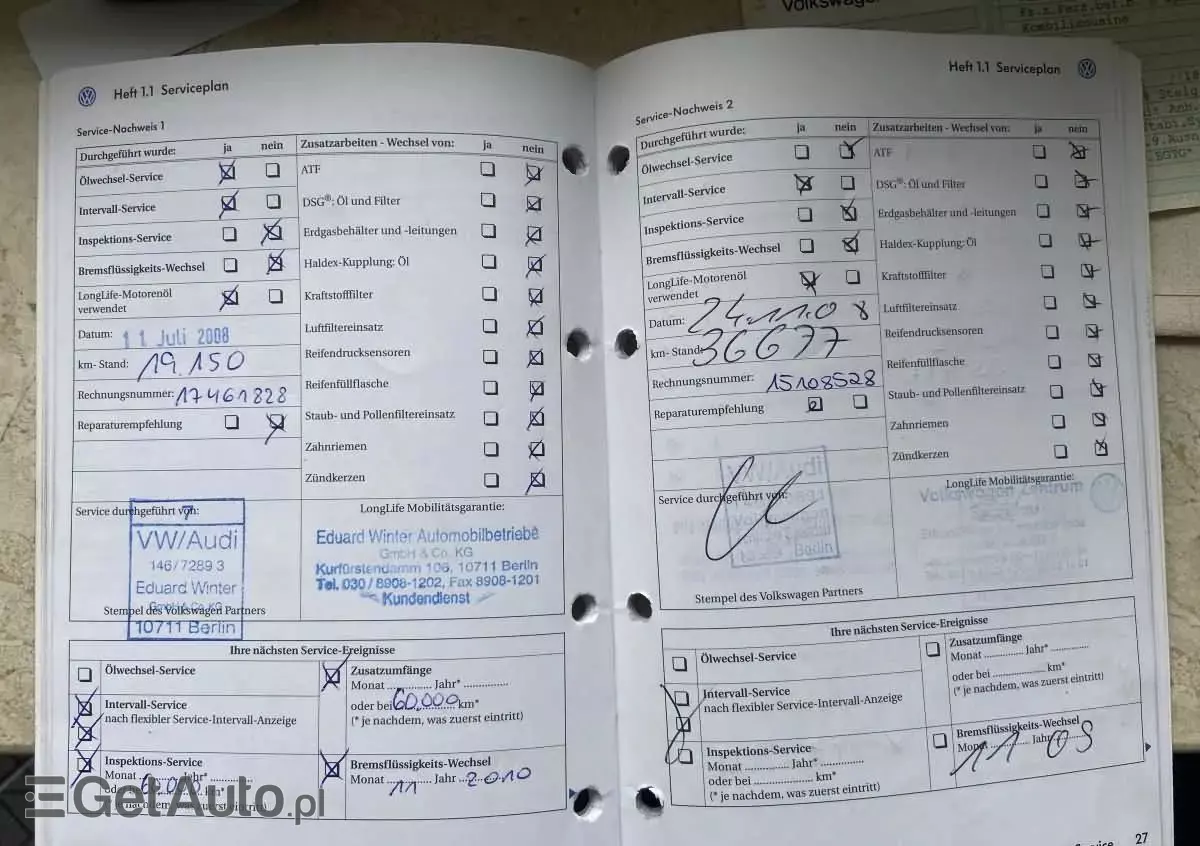 Volkswagen
Kombilimousine
Heft 1.1 Serviceplan
Service-Nachweis 1
Durchgeführt wurde: ja nein
Ölwechsel-Service
Intervall-Service
Inspektions-Service
Bremsflüssigkeits-Wechsel
LongLife-Motorenöl
verwendet
Datum: 11 Juli 2008
km- Stand: 19.150
Rechnungsnummer: 17461828
Reparaturempfehlung
Zusatzarbeiten - Wechsel von: ja nein
ATF
DSG®: Öl und Filter
Erdgasbehälter und -leitungen
Haldex-Kupplung: Öl
Kraftstofffilter
Luftfiltereinsatz
Reifendrucksensoren
Reifenfüllflasche
Staub- und Pollenfiltereinsatz
Zahnriemen
Zündkerzen
Service durchgeführt von:
7
VW/Audi
146/7289 3
Eduard Winter
GmbH & Co. KG
Stempel des Volkswagen Partners
10711 Berlin
LongLife Mobilitätsgarantie:
Eduard Winter Automobilbetriebe
GmbH & Co. KG
Kurfürstendamm 106, 10711 Berlin
Tel. 030/8908-1202, Fax 8908-1201
Kundendienst
Ihre nächsten Service-Ereignisse
Ölwechsel-Service
Intervall-Service
nach flexibler Service-Intervall-Anzeige
Inspektions-Service
Monat Jahr*
oder bei 60.000 km*
(* je nachdem, was zuerst eintritt)
Zusatzumfänge
Monat Jahr*
oder bei 60.000 km*
(* je nachdem, was zuerst eintritt)
Bremsflüssigkeits-Wechsel
Monat 11 Jahr 2010
Heft 1.1 Serviceplan
Service-Nachweis 2
Durchgeführt wurde: ja nein
Ölwechsel-Service
Intervall-Service
Inspektions-Service
Bremsflüssigkeits-Wechsel
LongLife-Motorenöl
verwendet
Datum: 24.11.08
km- Stand: 36677
Rechnungsnummer: 15108528
Reparaturempfehlung
Zusatzarbeiten - Wechsel von: ja nein
ATF
DSG®: Öl und Filter
Erdgasbehälter und -leitungen
Haldex-Kupplung: Öl
Kraftstofffilter
Luftfiltereinsatz
Reifendrucksensoren
Reifenfüllflasche
Staub- und Pollenfiltereinsatz
Zahnriemen
Zündkerzen
Service durchgeführt von:
VW/Audi
Berlin
Stempel des Volkswagen Partners
LongLife Mobilitätsgarantie:
Volkswagen Zentrum
Ihre nächsten Service-Ereignisse
Ölwechsel-Service
Intervall-Service
nach flexibler Service-Intervall-Anzeige
Inspektions-Service
Monat Jahr*
oder bei km*
(* je nachdem, was zuerst eintritt)
Zusatzumfänge
Monat Jahr*
oder bei km*
(* je nachdem, was zuerst eintritt)
Bremsflüssigkeits-Wechsel
Monat 11 Jahr 09
27
GetAuto.pl